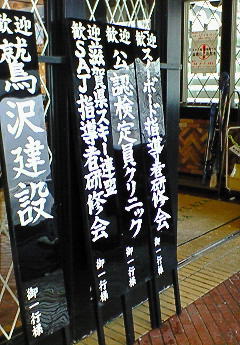 歓迎
スノーボード指導者研修会
御一行様
歓迎
公認検定員クリニック
御一行様
歓迎
滋賀県スキー連盟
SAJ指導者研修会
御一行様
歓迎
鷲沢建設
御一行様